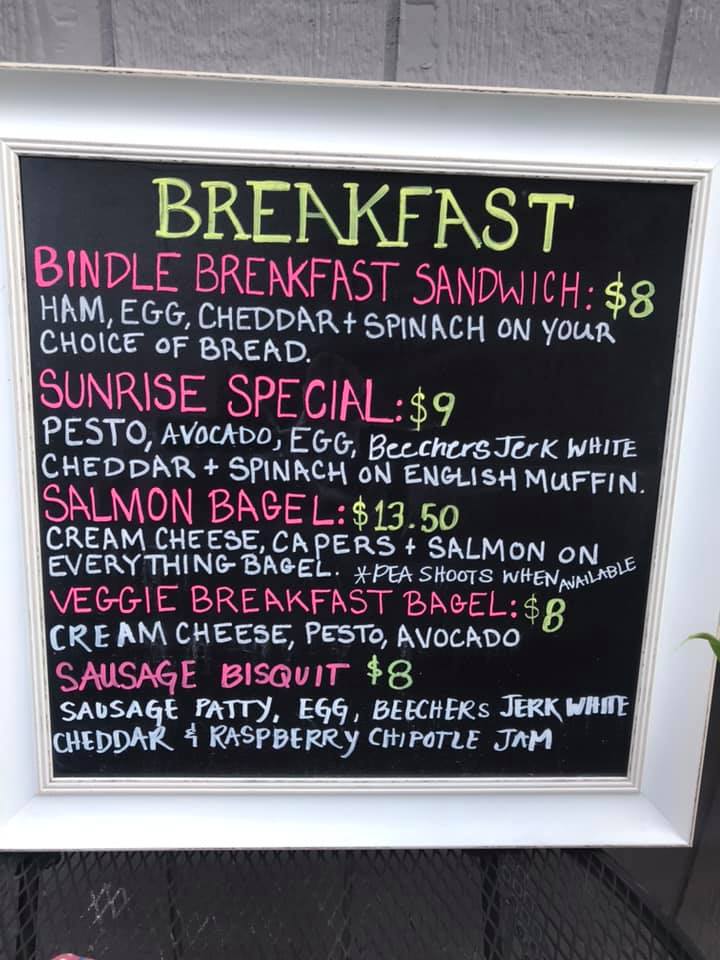 BREAKFAST
BINDLE BREAKFAST SANDWICH: $8
HAM, EGG, CHEDDAR + SPINACH ON YOUR
CHOICE OF BREAD.
SUNRISE SPECIAL: $9
PESTO, AVOCADO, EGG, Beechers Jerk WHITE
CHEDDAR + SPINACH ON ENGLISH MUFFIN.
SALMON BAGEL: $13.50
CREAM CHEESE, CAPERS + SALMON ON
EVERYTHING BAGEL. *PEA SHOOTS WHEN AVAILABLE
VEGGIE BREAKFAST BAGEL: $8
CREAM CHEESE, PESTO, AVOCADO
SAUSAGE BISQUIT $8
SAUSAGE PATTY, EGG, BEECHERS JERK WHITE
CHEDDAR & RASPBERRY CHIPOTLE JAM